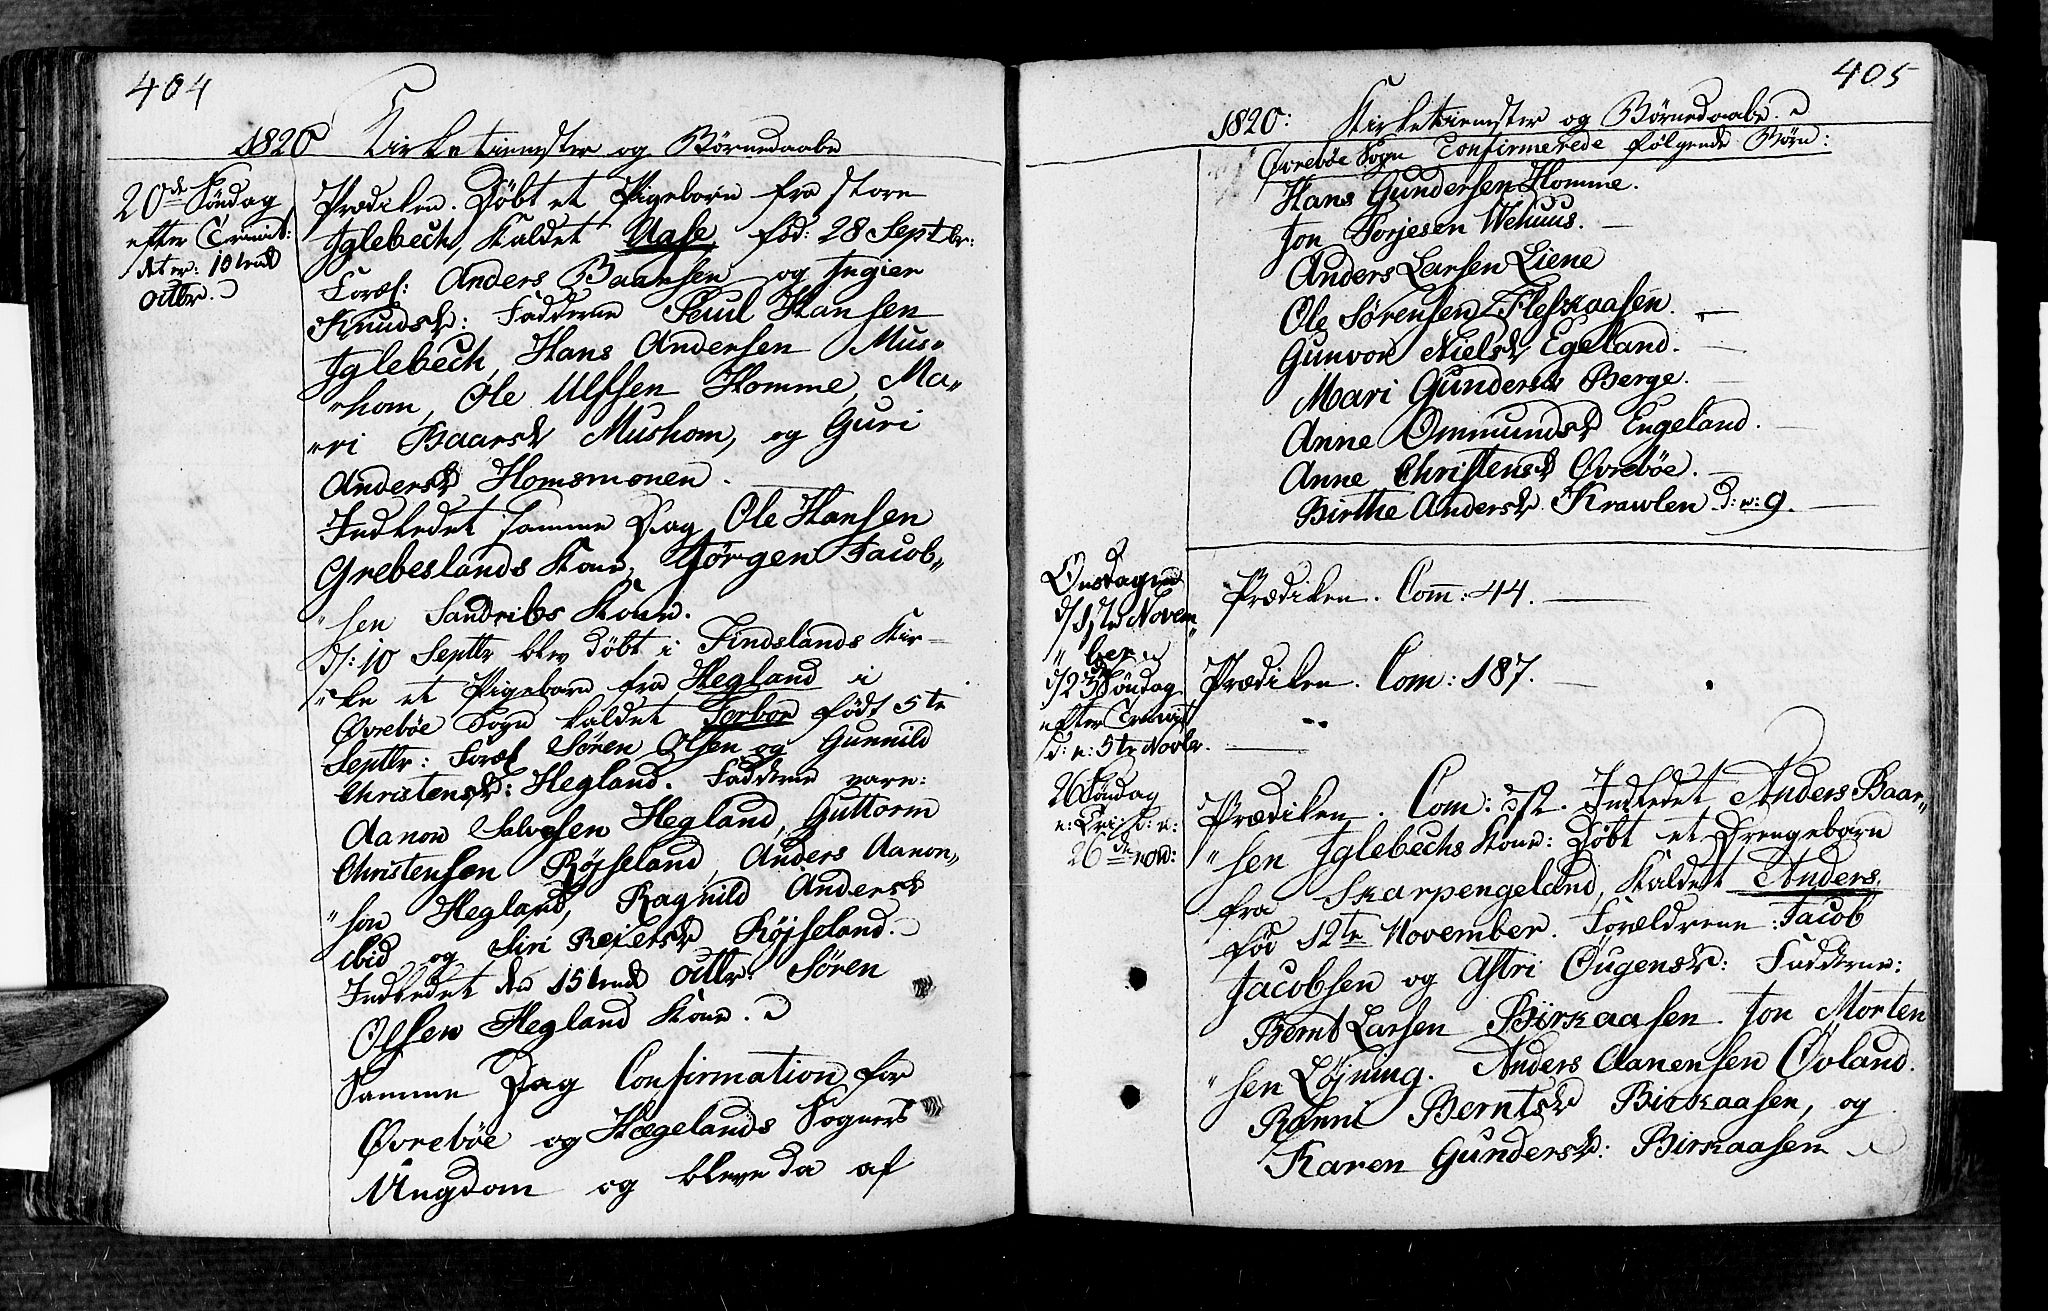 404
1820 Kirketienester og Börnedaabe
20de Söndag
efter Trinit:
det er: 10tende
octbr.
Prædiken. Döbt et Pigebarn fra store
Iglebech, kaldet Aase föd: 28 Septbr:
Foræl: Anders Baarsen og Ingier
Knudsd: Fadderne Poul Hansen
Iglebech, Hans Andersen Mus„
„hom, Ole Ulfsen Homme, Ma„
„ri Baarsd Mushom, og Guri
Andersd Homsmonen.
Indledet samme Dag Ole Hansen
Grebeslands Kone, Jörgen Jacob„
„sen Sandribs Kone.
d: 10 Septbr blev döbt i Findslands Kir„
„ke et Pigebarn fra Hegland i
Øvrebøe Sogn kaldet Torbor födt 5te
Septbr: Foræl Sören Olsen og Gunnild
Christensd: Hegland. Fadderne vare:
Aanon Salvesen Hegland, Guttorm
Christensen Röjseland, Anders Aanon„
„sen Hegland, Ragnild Andersd
ibid og Siri Rejersd Röjseland.
Indledet den 15tende octbr: Sören
Olsen Hegland Kone.
Samme Dag Confirmation for
Øvreböe og Hægelands Sogners
Ungdom og bleve da af
405
1820: Kirketienester og Börnedaabe.
Øvreböe Sogn Confirmerede fölgende Börn:
Hans Gundersen Homme.
Jon Torjesen Wehuus.
Anders Larsen Liene
Ole Sörensen Fleskaasen.
Gunvor Nielsd Egeland.
Mari Gundersd Berge.
Anne Ommundsd Engeland.
Anne Christensd Øvreböe.
Birthe Andersd Krawlen d: e: 9.
Onsdagen
d/1ste Novem„
„ber
Prædiken. Com̅: 44.
d/23 Söndag
efter Trinit
d: e: 5te Novbr.
Prædiken. Com: 187.
26 Söndag
e: Tri: d: e:
26de nov:
Prædiken. Com: 52. Indledet Anders Baar„
„sen Iglebechs Kone: Döbt et Drengebarn
fra Skarpengeland, kaldet Anders
föd 12te November. Forældrene: Jacob
Jacobsen og Astri Øugensd: Fadderne:
Bernt Larsen Birkaasen. Jon Morten
„sen Löjning. Anders Aanensen Øvland.
Ranni Berntsd Birkaasen, og
Karen Gundersd: Birkaasen